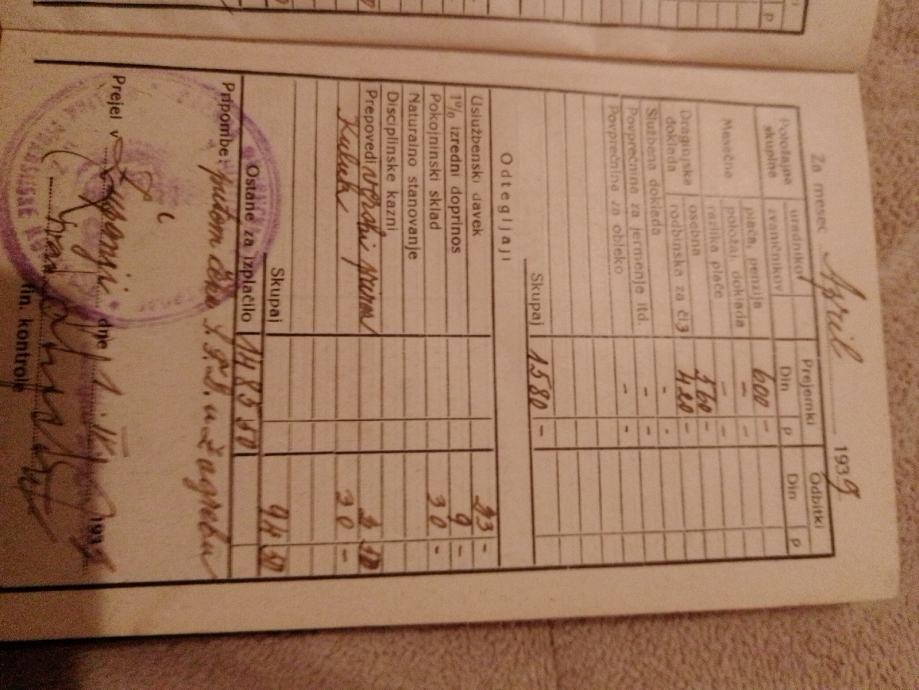 Za mesec April 1939.
Položajna skupina
uradnikov
zvaničnikov
Prejemki
Odbitki
Din p Din p
Mesečna
plača, penzija 600 -
položaj. doklada - -
razlika plače - -
Draginjska doklada
osebna 560 -
rodbinska za čl. 3 420 -
Službena doklada - -
Povprečnina za jermenje itd. - -
Povprečnina za obleko - -
Skupaj 1580 -
Odtegljaji
Uslužbenski davek 23 -
1% izredni doprinos 9 -
Pokojninski sklad 30 -
Naturalno stanovanje
Disciplinske kazni
Prepovedi 2 50
Kuluk 30 -
Skupaj 94 50
Ostane za izplačilo 1485 50
Pripombe: putom u Zagrebu
Prejel v dne 1. 1939
fin. kontrole